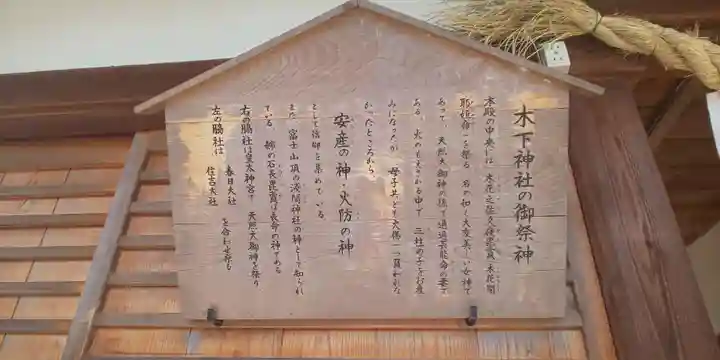 木下神社の御祭神
本殿の中央には 木花之佐久夜毘賣(木花開
耶姫命)を祭る 名の如く大変美しい女神で
あって 天照大御神の孫で邇邇芸能命の妻で
ある 火のもえさかる中で 三柱の子をお産
みになったが 母子共ども火傷一つ負われな
かったところから、
安産の神・火防の神
として信仰を集めている
また 富士山頂の浅間神社の神として知られ
ている 姉の石長毘賣は長命の神である
右の脇社は皇大神宮で 天照大御神を祭り
左の脇社は 春日大社
住吉大社 を合わせ祭る